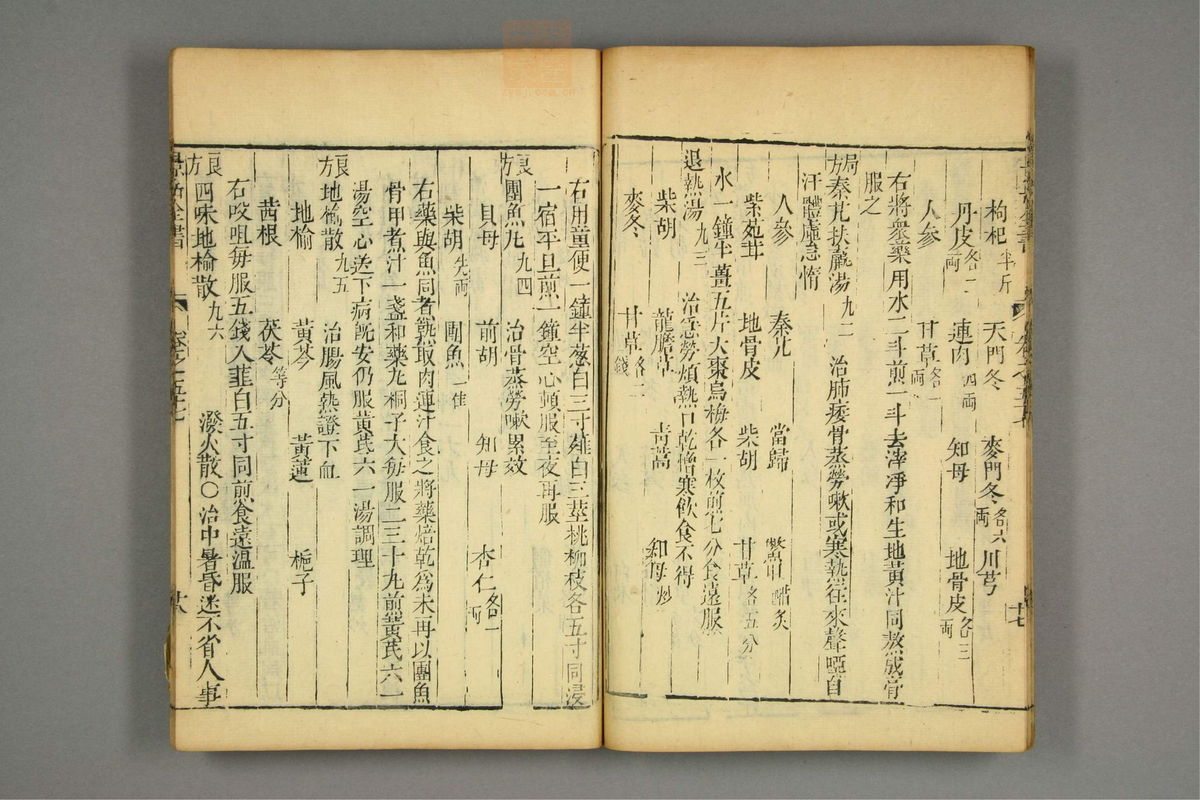 枸杞半斤 天門冬 麥門冬各六兩 川芎
丹皮各二兩 連肉四兩 知母 地骨皮各三兩
人參 甘草各一兩
右將衆藥用水二斗煎一斗去滓凈和生地黃汁同熬成膏
服之
局方秦艽扶羸湯九二 治肺痿骨蒸勞嗽或寒熱往來聲啞自
汗體虛怠惰
人參 秦艽 當歸 鱉甲醋炙
紫菀茸 地骨皮 柴胡 甘草各五分
水一鐘半薑五片大棗烏梅各一枚煎七分食遠服
退熱湯九三 治急勞煩熱口乾憎寒飲食不得
柴胡 龍膽草 青蒿 知母炒
麥冬 甘草各二錢
右用童便一鐘半葱白三寸薤白三莖桃柳枝各五寸同浸
一宿平旦煎一鐘空心頓服至夜再服
良方團魚丸九四 治骨蒸勞嗽累效
貝母 前胡 知母 杏仁各一兩
柴胡 團魚一隹
右藥與魚同煮熟取肉連汁食之將藥焙乾爲末再以團魚
骨甲煮汁一盞和藥丸桐子大每服二三十丸煎黃芪六一
湯空心送下病既安仍服黃芪六一湯調理
良方地榆散九五 治腸風熱證下血
地榆 黃芩 黃蓮 梔子
茜根 茯苓等分
右㕮咀每服五錢入韭白五寸同煎食遠溫服
良方四味地榆散九六 潑火散○治中暑昏迷不省人事
景岳全書 卷之五七 廿八